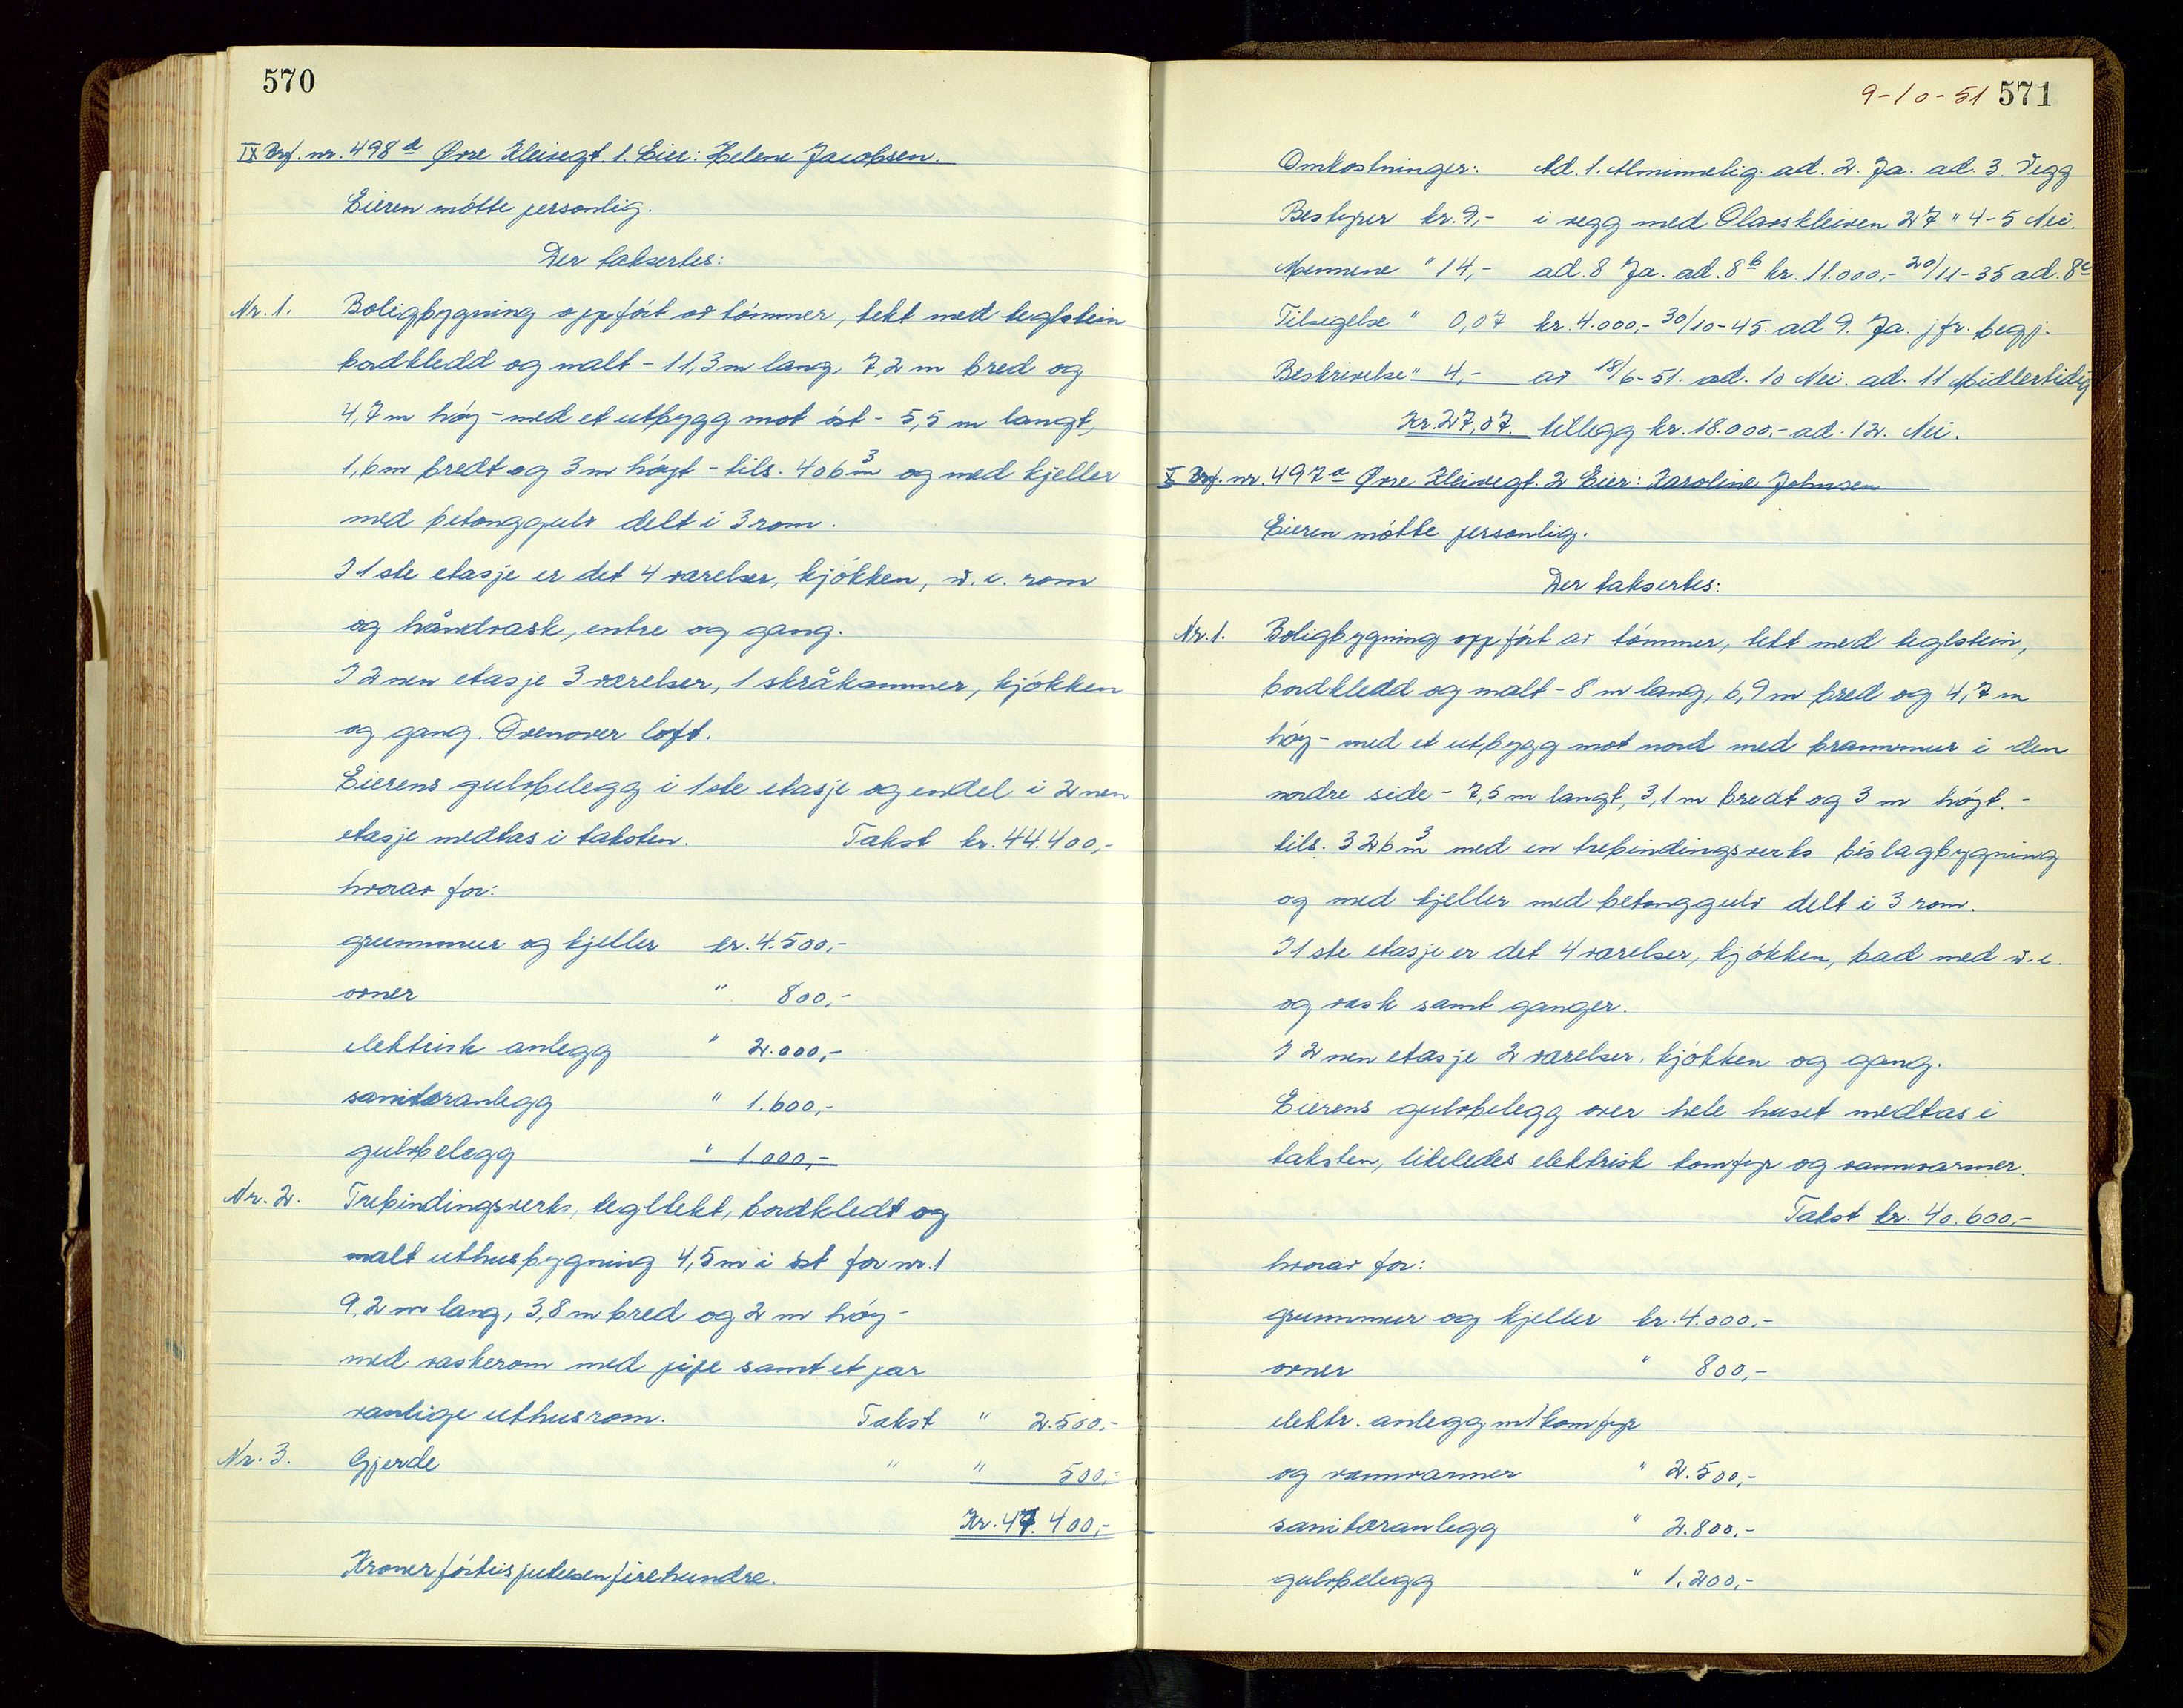 570
IX Brf. nr. 498 d Øvre Kleivegt. 1. Eier: Helene Jacobsen.
Eieren møtte personlig.
Der takseres:
Nr. 1. Boligbygning oppført av tømmer, tekt med teglstein
bordkledd og malt - 11,3 m lang, 7,2 m bred og
4,7 m høy - med et utbygg mot øst - 5,5 m langt,
1,6 m bredt og 3 m høyt - tils. 406 m3 og med kjeller
med betonggulv delt i 3 rom.
I 1ste etasje er det 4 værelser, kjøkken, w.c. rom
og håndvask, entre og gang.
I 2nen etasje 3 værelser, 1 skråkammer, kjøkken
og gang. Ovenover loft.
Eierens gulvbelegg i 1ste etasje og endel i 2nen
etasje medtas i taksten. Takst kr. 44.400,-
hvorav for:
grunnmur og kjeller kr. 4.500,-
ovner " 800,-
elektrisk anlegg " 2.000,-
sanitæranlegg " 1.600,-
gulvbelegg " 1.000,-
Nr. 2. Trebindingsverks, tegltekt, bordkledt og
malt uthusbygning 4,5 m i øst for nr. 1
9,2 m lang, 3,8 m bred og 2 m høy -
med vaskerom med pipe samt et par
vanlige uthusrom. Takst " 2.500,-
Nr. 3. Gjerde " " 500,-
Kr. 47.400,-
Kroner førtisjutusenfirehundre.
9-10-51 571
Omkostninger: Ad. 1. Alminnelig. ad. 2. Ja. ad. 3. Vegg
Bestyrer kr. 9,- i vegg med Olavskleiven 27 " 4-5 Nei.
Mennene " 14,- ad. 8 Ja. ad. 8 b kr. 11.000,- 20/11-35 ad. 8 c
Tilsigelse " 0,07 kr. 4.000,- 30/10-45. ad 9. Ja. jfr. begj.
Beskrivelse " 4,- av 18/6-51. ad. 10 Nei. ad. 11 Midlertidig
Kr. 27,07. tillegg kr. 18.000,- ad. 12. Nei.
X Brf. nr. 497 a Øvre Kleivegt. 2 Eier: Karoline Johnsen
Eieren møtte personlig.
Der takseres:
Nr. 1. Boligbygning oppført av tømmer, tekt med teglstein,
bordkledd og malt - 8 m lang, 6,9 m bred og 4,7 m
høy - med et utbygg mot nord med brannmur i den
nordre side - 7,5 m langt, 3,1 m bredt og 3 m høyt. -
tils. 326 m3 med en trebindingsverks bislagbygning
og med kjeller med betonggulv delt i 3 rom.
I 1ste etasje er det 4 værelser, kjøkken, bad med w.c.
og vask samt ganger.
I 2nen etasje 2 værelser, kjøkken og gang.
Eierens gulvbelegg over hele huset medtas i
taksten, likeledes elektrisk komfyr og vannvarmer.
Takst kr. 40.600,-
hvorav for:
grunnmur og kjeller kr. 4.000,-
ovner " 800,-
elektr. anlegg m/komfyr
og vannvarmer " 2.500,-
sanitæranlegg " 2.800,-
gulvbelegg " 1.200,-